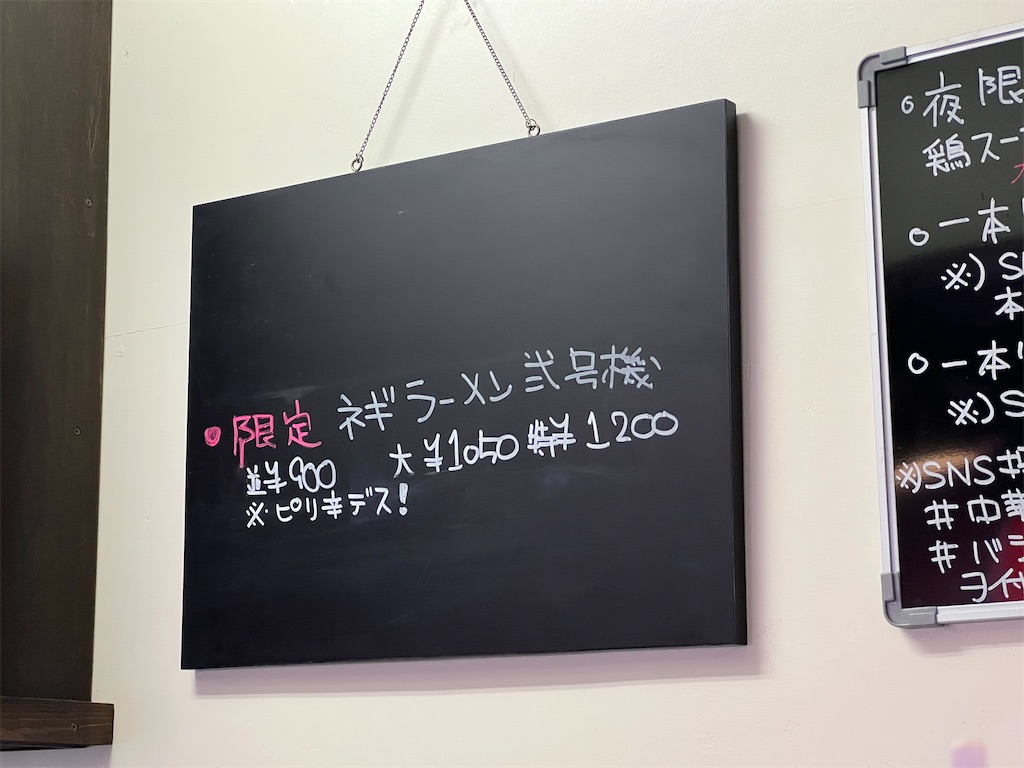 限定 ネギラーメン 弐号機
並¥900 大¥1050 特¥1200
※ピリ辛デス!
夜限
鶏スー
一本
※)S
本
一本
※)S
※)SNS#
#中華
#バ
ヨイ